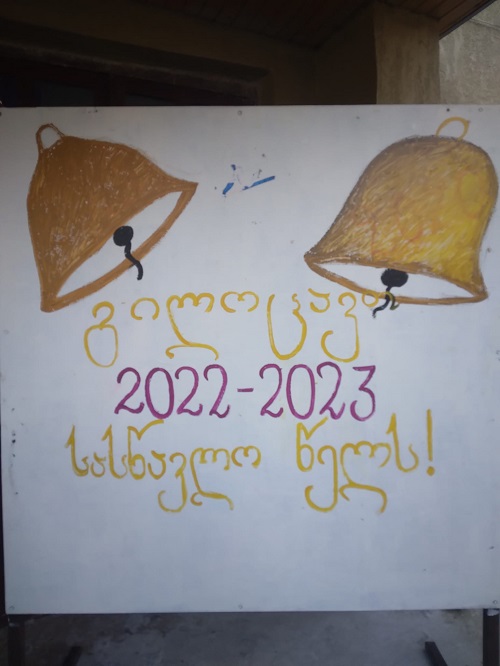 გილოცავთ
2022-2023
სასწავლო წელს!